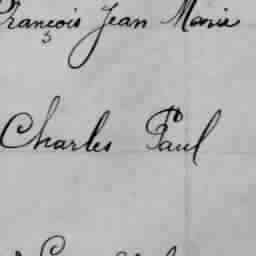 François Jean Marie
Charles Paul